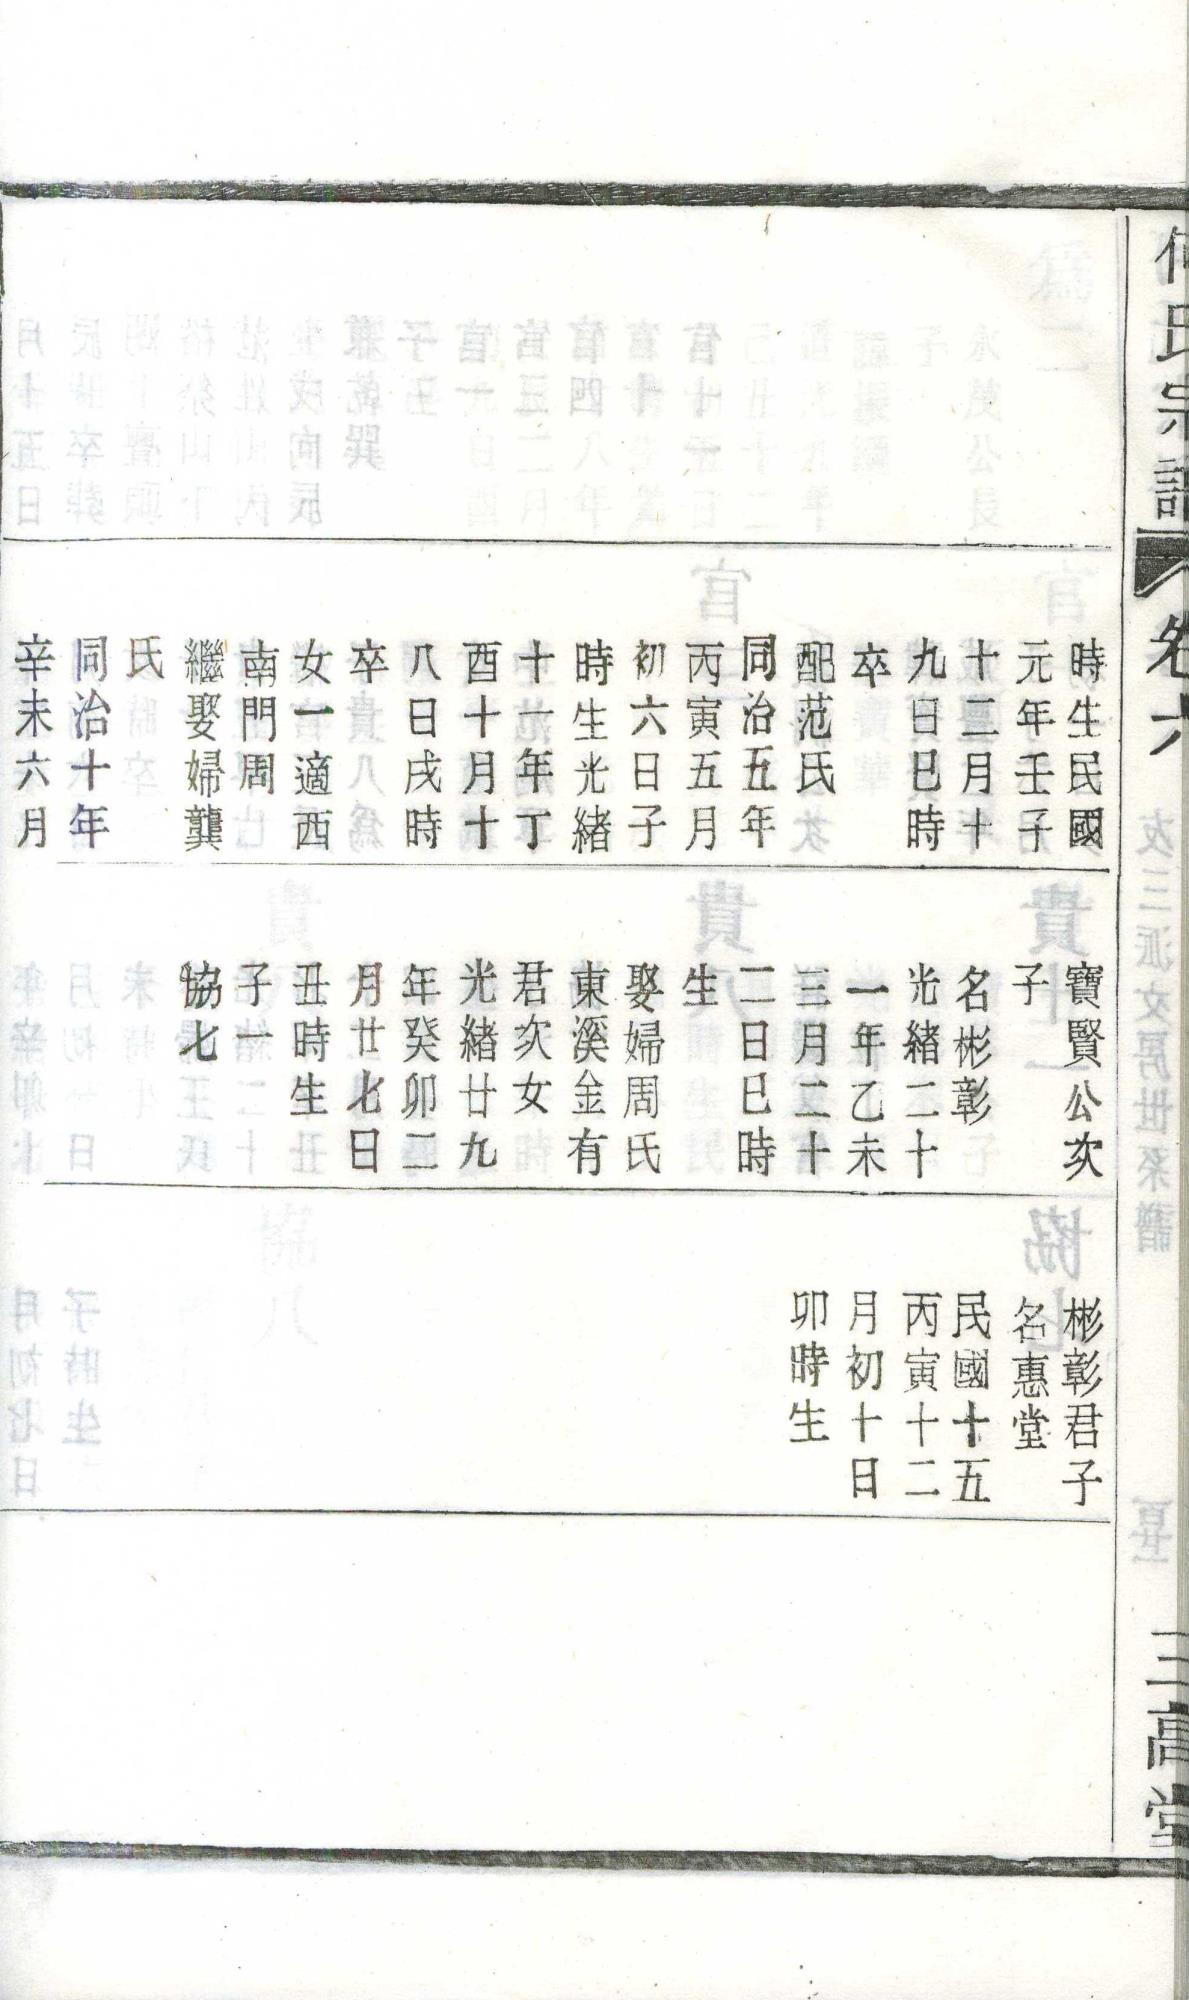 何氏宗譜
卷六
三高堂
時生民國
元年壬子
十二月十
九日巳時
卒
配范氏
同治五年
丙寅五月
初六日子
時生光緒
十一年丁
酉十月十
八日戌時
卒
女一適西
南門周
繼娶婦龔
氏
同治十年
辛未六月
寶賢公次
子
名彬彰
光緒二十
一年乙未
三月二十
二日巳時
生
娶婦周氏
東溪金有
君次女
光緒廿九
年癸卯二
月廿七日
丑時生
子一
協七
彬彰君子
名惠堂
民國十五
丙寅十二
月初十日
卯時生